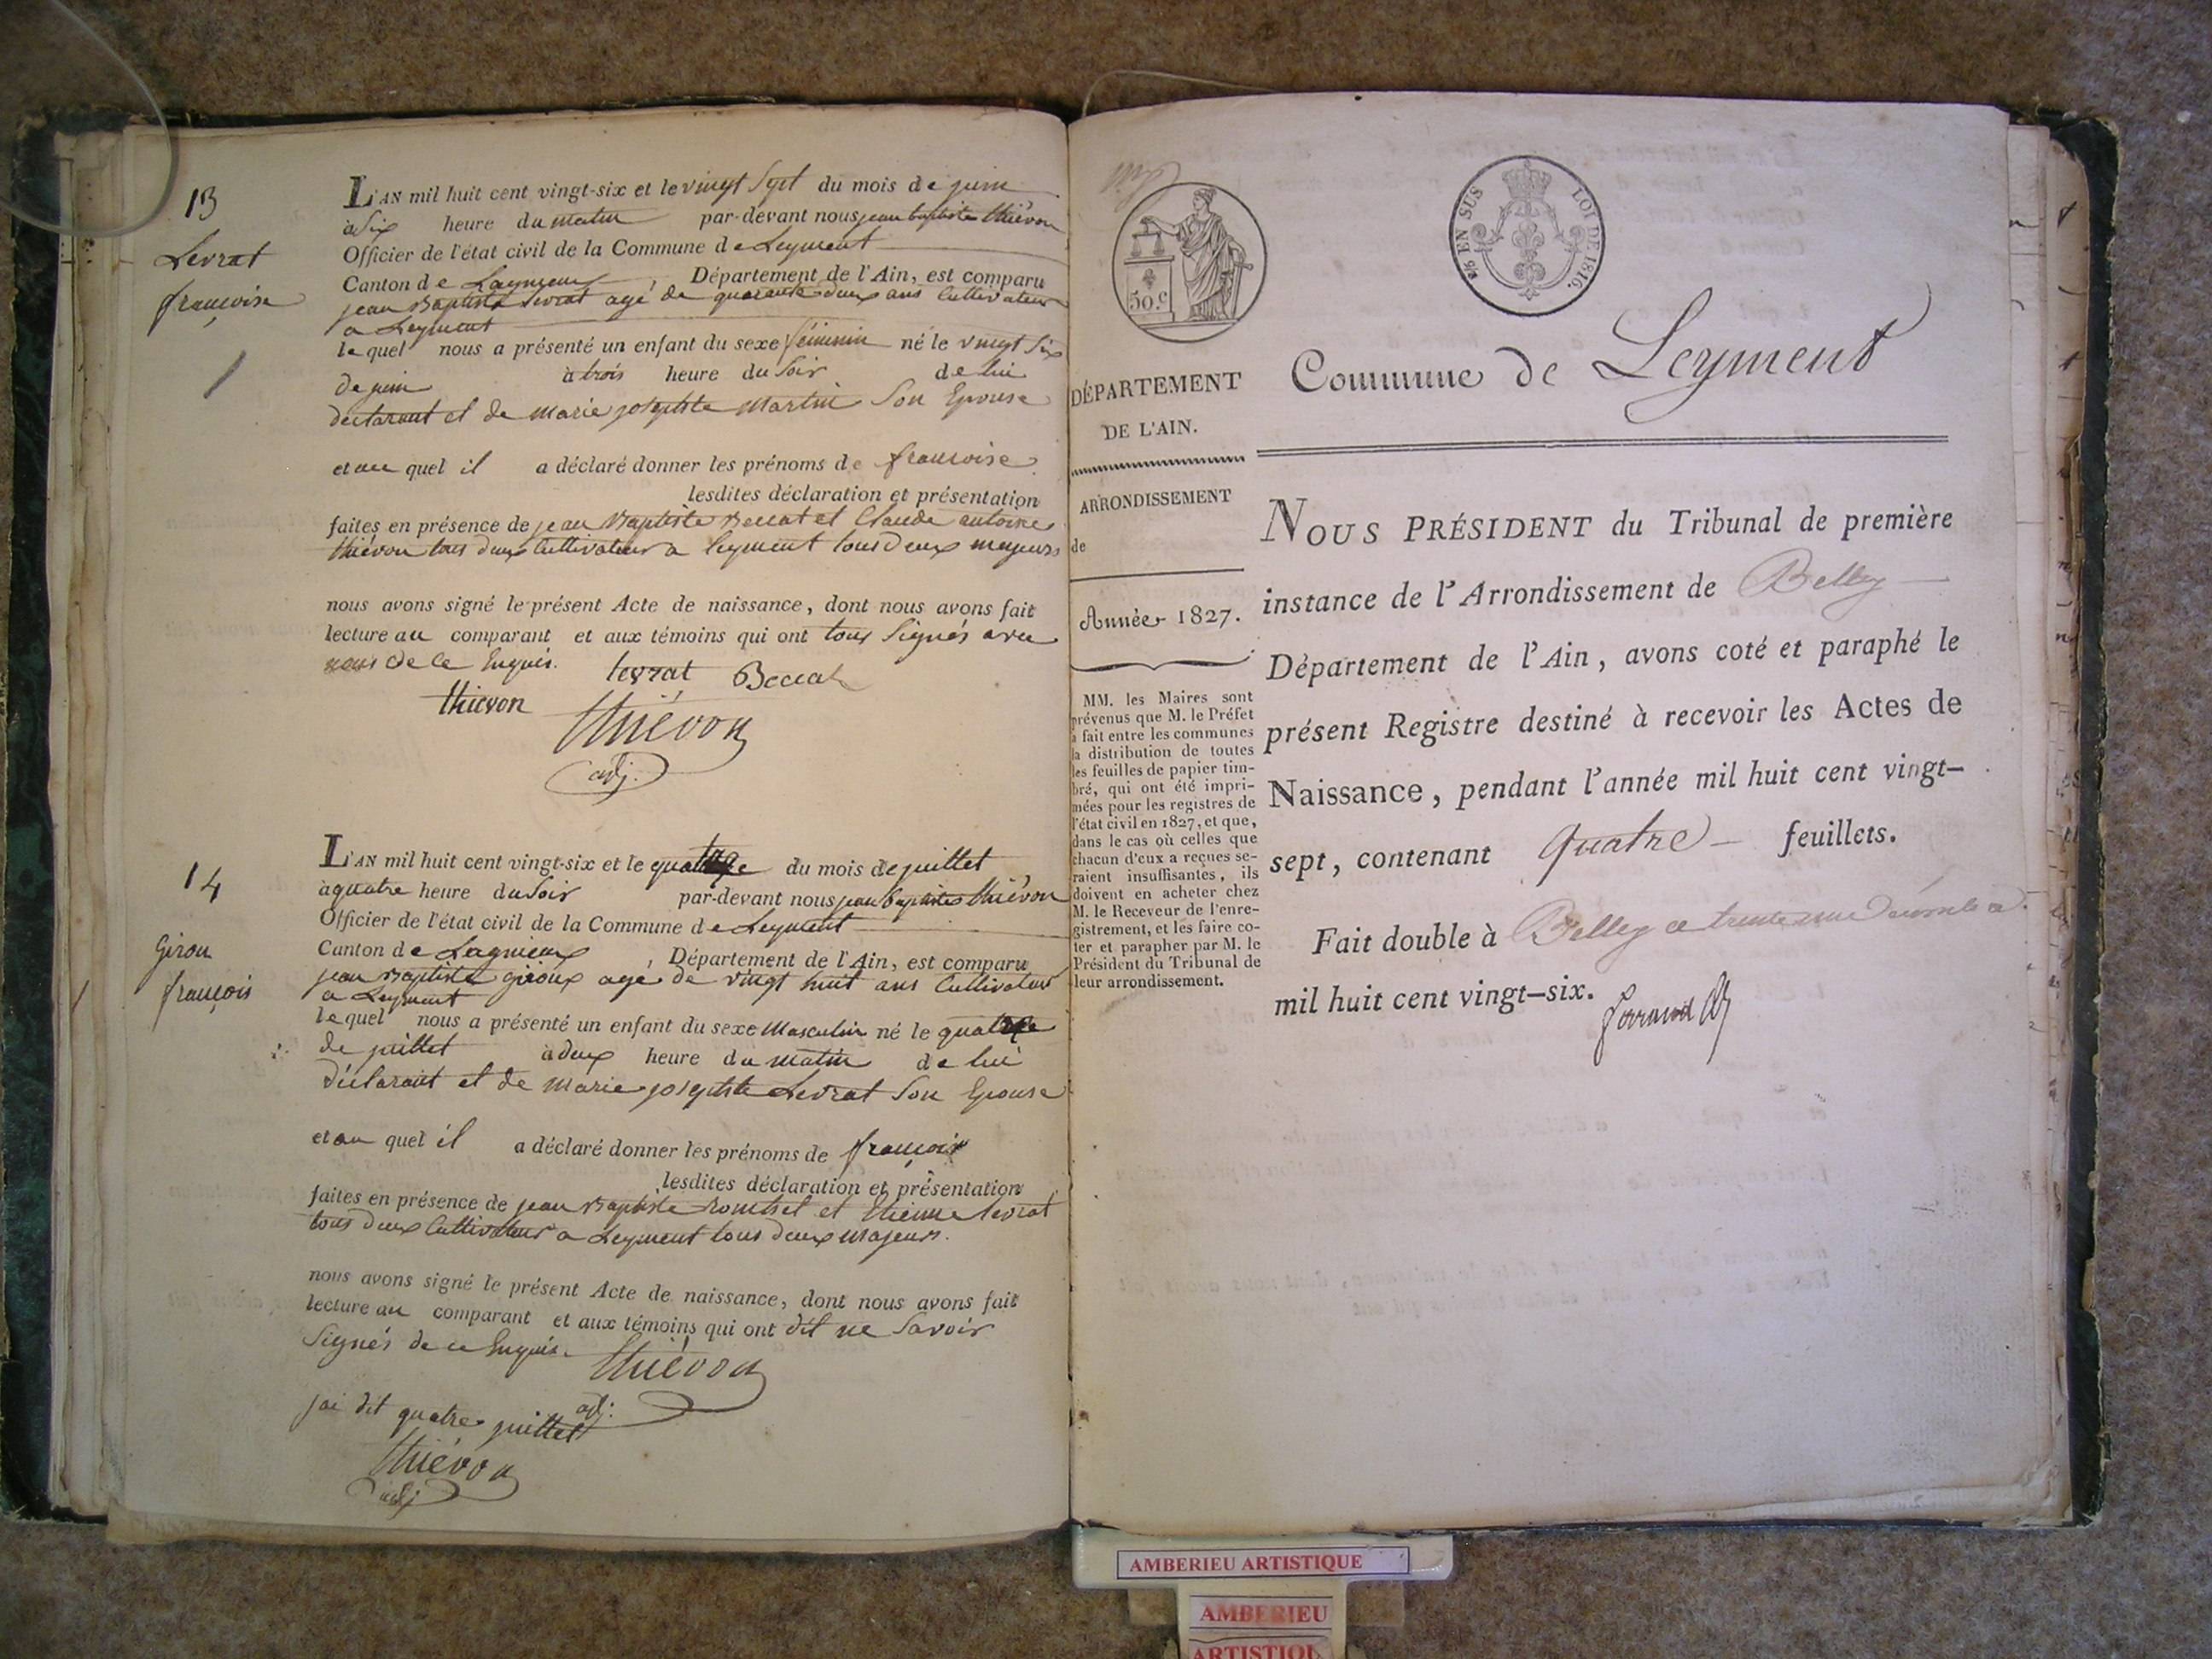 13
Levrat
françoise
L'AN mil huit cent vingt-six et le vingt Sept du mois de juin
à Six heure du matin par-devant nous jean baptiste thiévon
Officier de l'état civil de la Commune de Leyment
Canton de Lagnieux, Département de l'Ain, est comparu
jean Baptiste Levrat agé de quarante deux ans Cultivateur
a Leyment
lequel nous a présenté un enfant du sexe féminin né le vingt Six
de juin à trois heure du Soir de lui
déclarant et de marie josephte martin Son Epouse
et au quel il a déclaré donner les prénoms de françoise
lesdites déclaration et présentation
faites en présence de jean Baptiste Beccat et Claude antoine
thiévon tous deux Cultivateurs a leyment tous deux majeurs
nous avons signé le présent Acte de naissance, dont nous avons fait
lecture au comparant et aux témoins qui ont tous Signés avec
nous de ce Enquis. levrat Beccat
thievon thiévon
adj.
14
Girou
françois
L'AN mil huit cent vingt-six et le du mois de juillet
à quatre heure du Soir par-devant nous jean baptiste thiévon
Officier de l'état civil de la Commune de Leyment
Canton de Lagnieux, Département de l'Ain, est comparu
jean Baptiste giroux agé de vingt huit ans Cultivateur
a Leyment
lequel nous a présenté un enfant du sexe Masculin né le
de juillet à deux heure du matin de lui
déclarant et de marie josephte Levrat Son Epouse
et au quel il a déclaré donner les prénoms de françois
lesdites déclaration et présentation
faites en présence de jean Baptiste et Etienne levrat
tous deux Cultivateur a Leyment tous deux majeurs.
nous avons signé le présent Acte de naissance, dont nous avons fait
lecture au comparant et aux témoins qui ont dit ne Savoir
Signés de ce Enquis. thiévon
adj.
jai dit quatre juillet
thiévon
adj
50 c
1/6 EN SUS LOI DE 1816.
Commune de Leyment
DÉPARTEMENT
DE L'AIN.
ARRONDISSEMENT
de
Année 1827.
MM. les Maires sont
prévenus que M. le Préfet
a fait entre les communes
la distribution de toutes
les feuilles de papier tim-
bré, qui ont été impri-
mées pour les registres de
l'état civil en 1827, et que,
dans le cas où celles que
chacun d'eux a reçues se-
raient insuffisantes, ils
doivent en acheter chez
M. le Receveur de l'enre-
gistrement, et les faire co-
ter et parapher par M. le
Président du Tribunal de
leur arrondissement.
NOUS PRÉSIDENT du Tribunal de première
instance de l'Arrondissement de Belley
Département de l'Ain, avons coté et paraphé le
présent Registre destiné à recevoir les Actes de
Naissance, pendant l'année mil huit cent vingt-
sept, contenant Quatre feuillets.
Fait double à Belley ce trente une décembre
mil huit cent vingt-six.
AMBERIEU ARTISTIQUE
AMBERIEU
ARTISTIQU